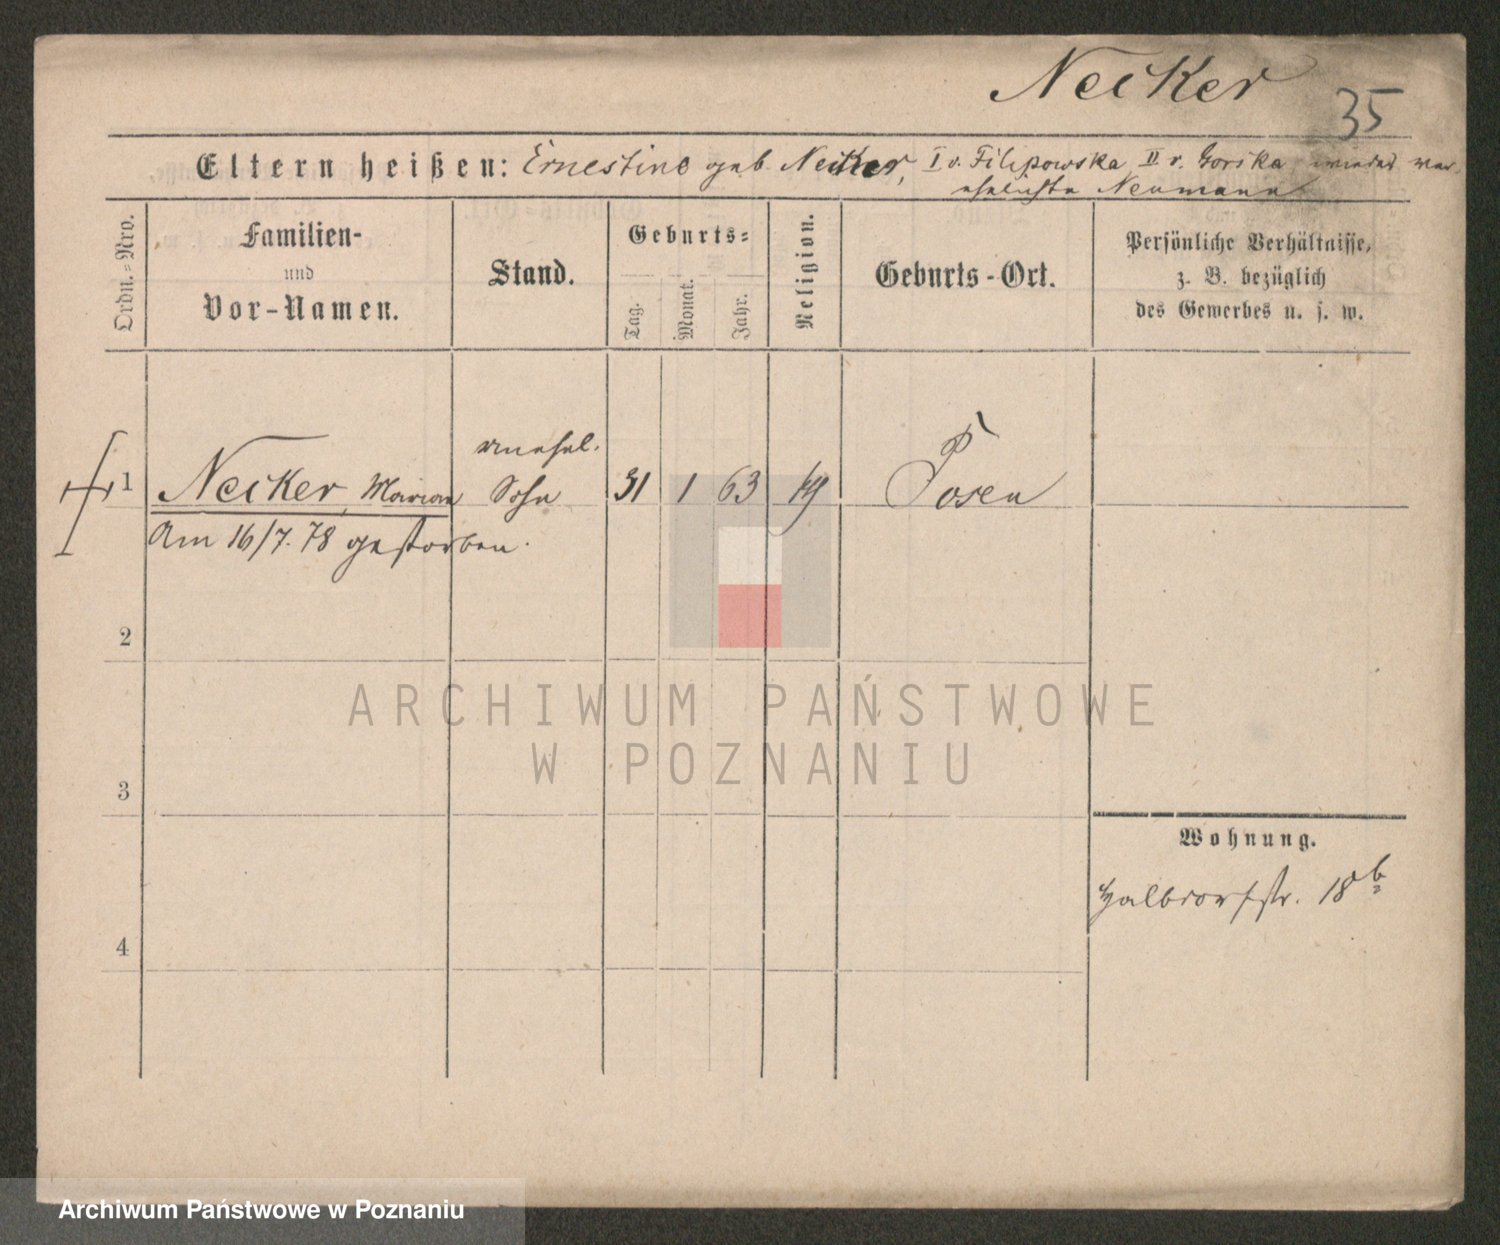 Necker
35
Eltern heißen: Ernestine geb Necker, I v. Filipowska II v. Gorska wieder ver-
ehelichte Neumann
Ordn.=Nro.
Familien-
und
Vor-Namen.
Stand.
Geburts=
Tag.
Monat.
Jahr.
Religion.
Geburts-Ort.
Persönliche Verhältnisse,
z. B. bezüglich
des Gewerbes u. s. w.
unehel.
1 Necker, Marian Sohn 31 1 63 Posen
Am 16/7. 78 gestorben.
2
ARCHIWUM PAŃSTWOWE
W POZNANIU
3
Wohnung.
Halbdorfstr. 18b
4
Archiwum Państwowe w Poznaniu